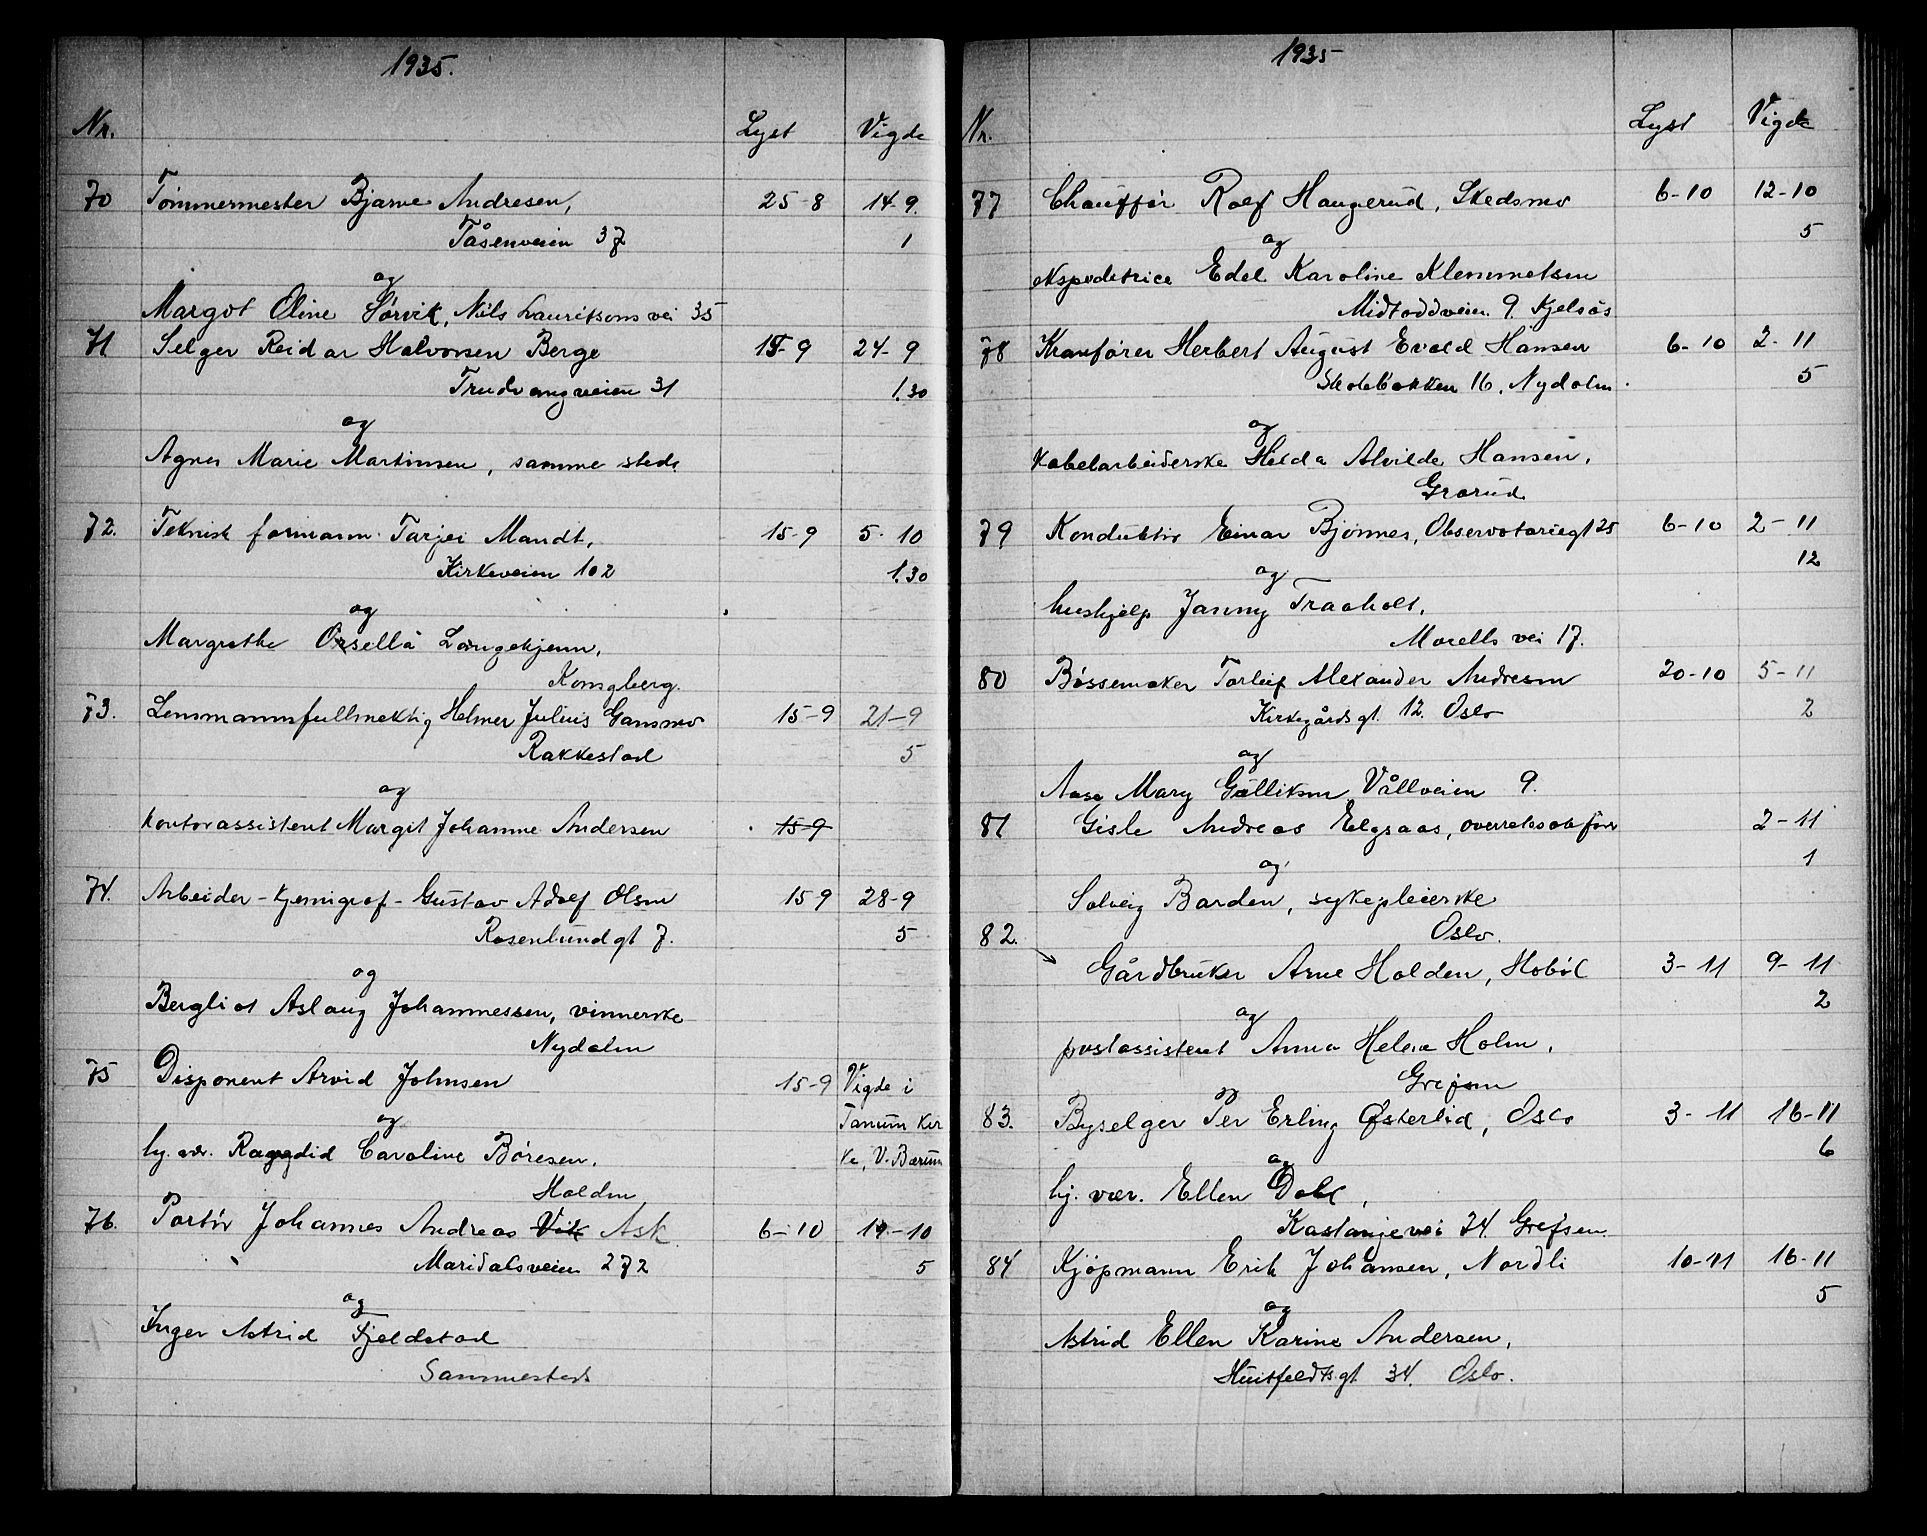 1935.
Nr. Lyst Vigde
70 Tømmermester Bjarne Andresen, 25-8 14-9.
Tåsenveien 37 1
og
Margot Oline Sørvik, Nils Lauritsons vei 35
71 Selger Reidar Halvorsen Berge 15-9 24-9
Trudvangveien 31 1.30
og
Agnes Marie Martinsen, samme steds
72. Teknisk formann Tarjei Mandt, 15-9 5-10
Kirkeveien 102 1.30
og
Margrethe Langekjenn,
Kongsberg.
73. Lensmannsfullmektig Helmer Julius Gansmo 15-9 21-9
Rakkestad 5
og
kontorassistent Margit Johanne Andersen 15-9
74. Arbeider - kjemigraf - Gustav Adolf Olsen 15-9 28-9
Rosenlundgt 7. 5
og
Bergliot Aslaug Johannessen, vinnerske
Nydalen
75 Disponent Arvid Johnsen 15-9 Vigde i
og Tanum Kir
hj. vær. Ragndid Caroline Børesen, ke, V. Bærum
Halden
76. Portør Johannes Andreas Vik Ask. 6-10 19-10
Maridalsveien 272 5
og
Inger Astrid Fjeldstad
Sammesteds
1935
Nr. Lyst Vigde
77 Chauffør Rolf Haugerud, Skedsmo 6-10 12-10
og 5
ekspeditrice Edel Karoline Klemmetsen
Midtoddveien 9 Kjelsås
78 Kranfører Herbert August Evald Hansen 6-10 2-11
Skolebakken 16, Nydalen. 5
og
kabelarbeiderske Helda Alvilde Hansen,
Grorud
79 Konduktør Einar Bjønnes, Observatoriegt 25 6-10 2-11
og 12
hushjelp Janny Traaholt,
Morells vei 17.
80 Bøssemaker Torleif Alexander Andresen 20-10 5-11
Kirkegårdsgt. 12. Oslo 2
og
Aase Mary Gulliksen Vållveien 9.
81 Gisle Andreas Elgsaas, overrettssakfører 2-11
og 1
Solveig Barden, sykepleierske
82. Oslo.
Gårdbruker Arne Holden, Hobøl 3-11 9-11
og 2
postassistent Anna Helene Holm,
Grefsen
83. Byselger Per Erling Østerlid, Oslo 3-11 16-11
og 6
hj. vær. Ellen Dahl,
Kastanjevei 24. Grefsen.
84 Kjøpmann Erik Johansen, Nordli 10-11 16-11
og 5
Astrid Ellen Karine Andersen,
Huitfeldtsgt 34. Oslo.